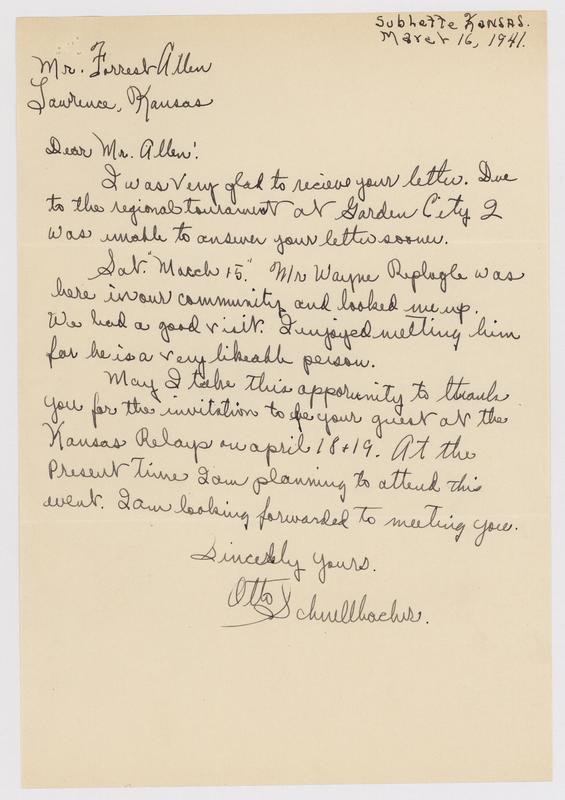 Sublette Kansas.
March 16, 1941.
Mr. Forrest Allen
Lawrence, Kansas
Dear Mr. Allen:
I was very glad to recieve your letter. Due
to the regional tournament at Garden City I
was unable to answer your letter sooner.
Sat. "March 15." Mr Wayne Replogle was
here in our community and looked me up.
We had a good visit. I enjoyed metting him
for he is a very likeable person.
May I take this apporunity to thank
you for the invitation to be your guest at the
Kansas Relays on april 18+19. At the
Present time I am planning to attend this
event. I am looking forwarded to meeting you.
Sincerely yours.
Otto Schnellbacher.